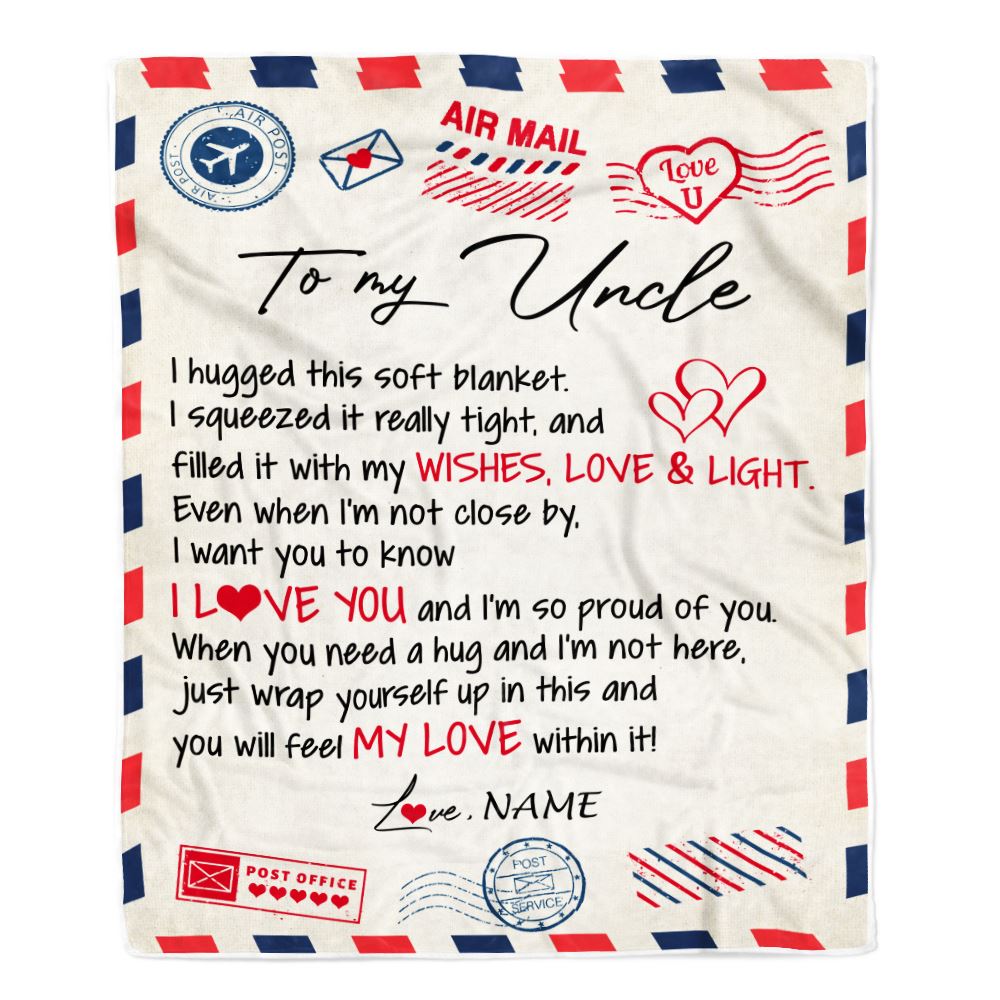 AIR POST
AIR POST
AIR POST
AIR MAIL
Love
U
To my Uncle
I hugged this soft blanket.
I squeezed it really tight, and
filled it with my WISHES, LOVE & LIGHT.
Even when I'm not close by,
I want you to know
I L❤VE YOU and I'm so proud of you.
When you need a hug and I'm not here,
just wrap yourself up in this and
you will feel MY LOVE within it!
L❤ve, NAME
POST OFFICE
POST
SERVICE